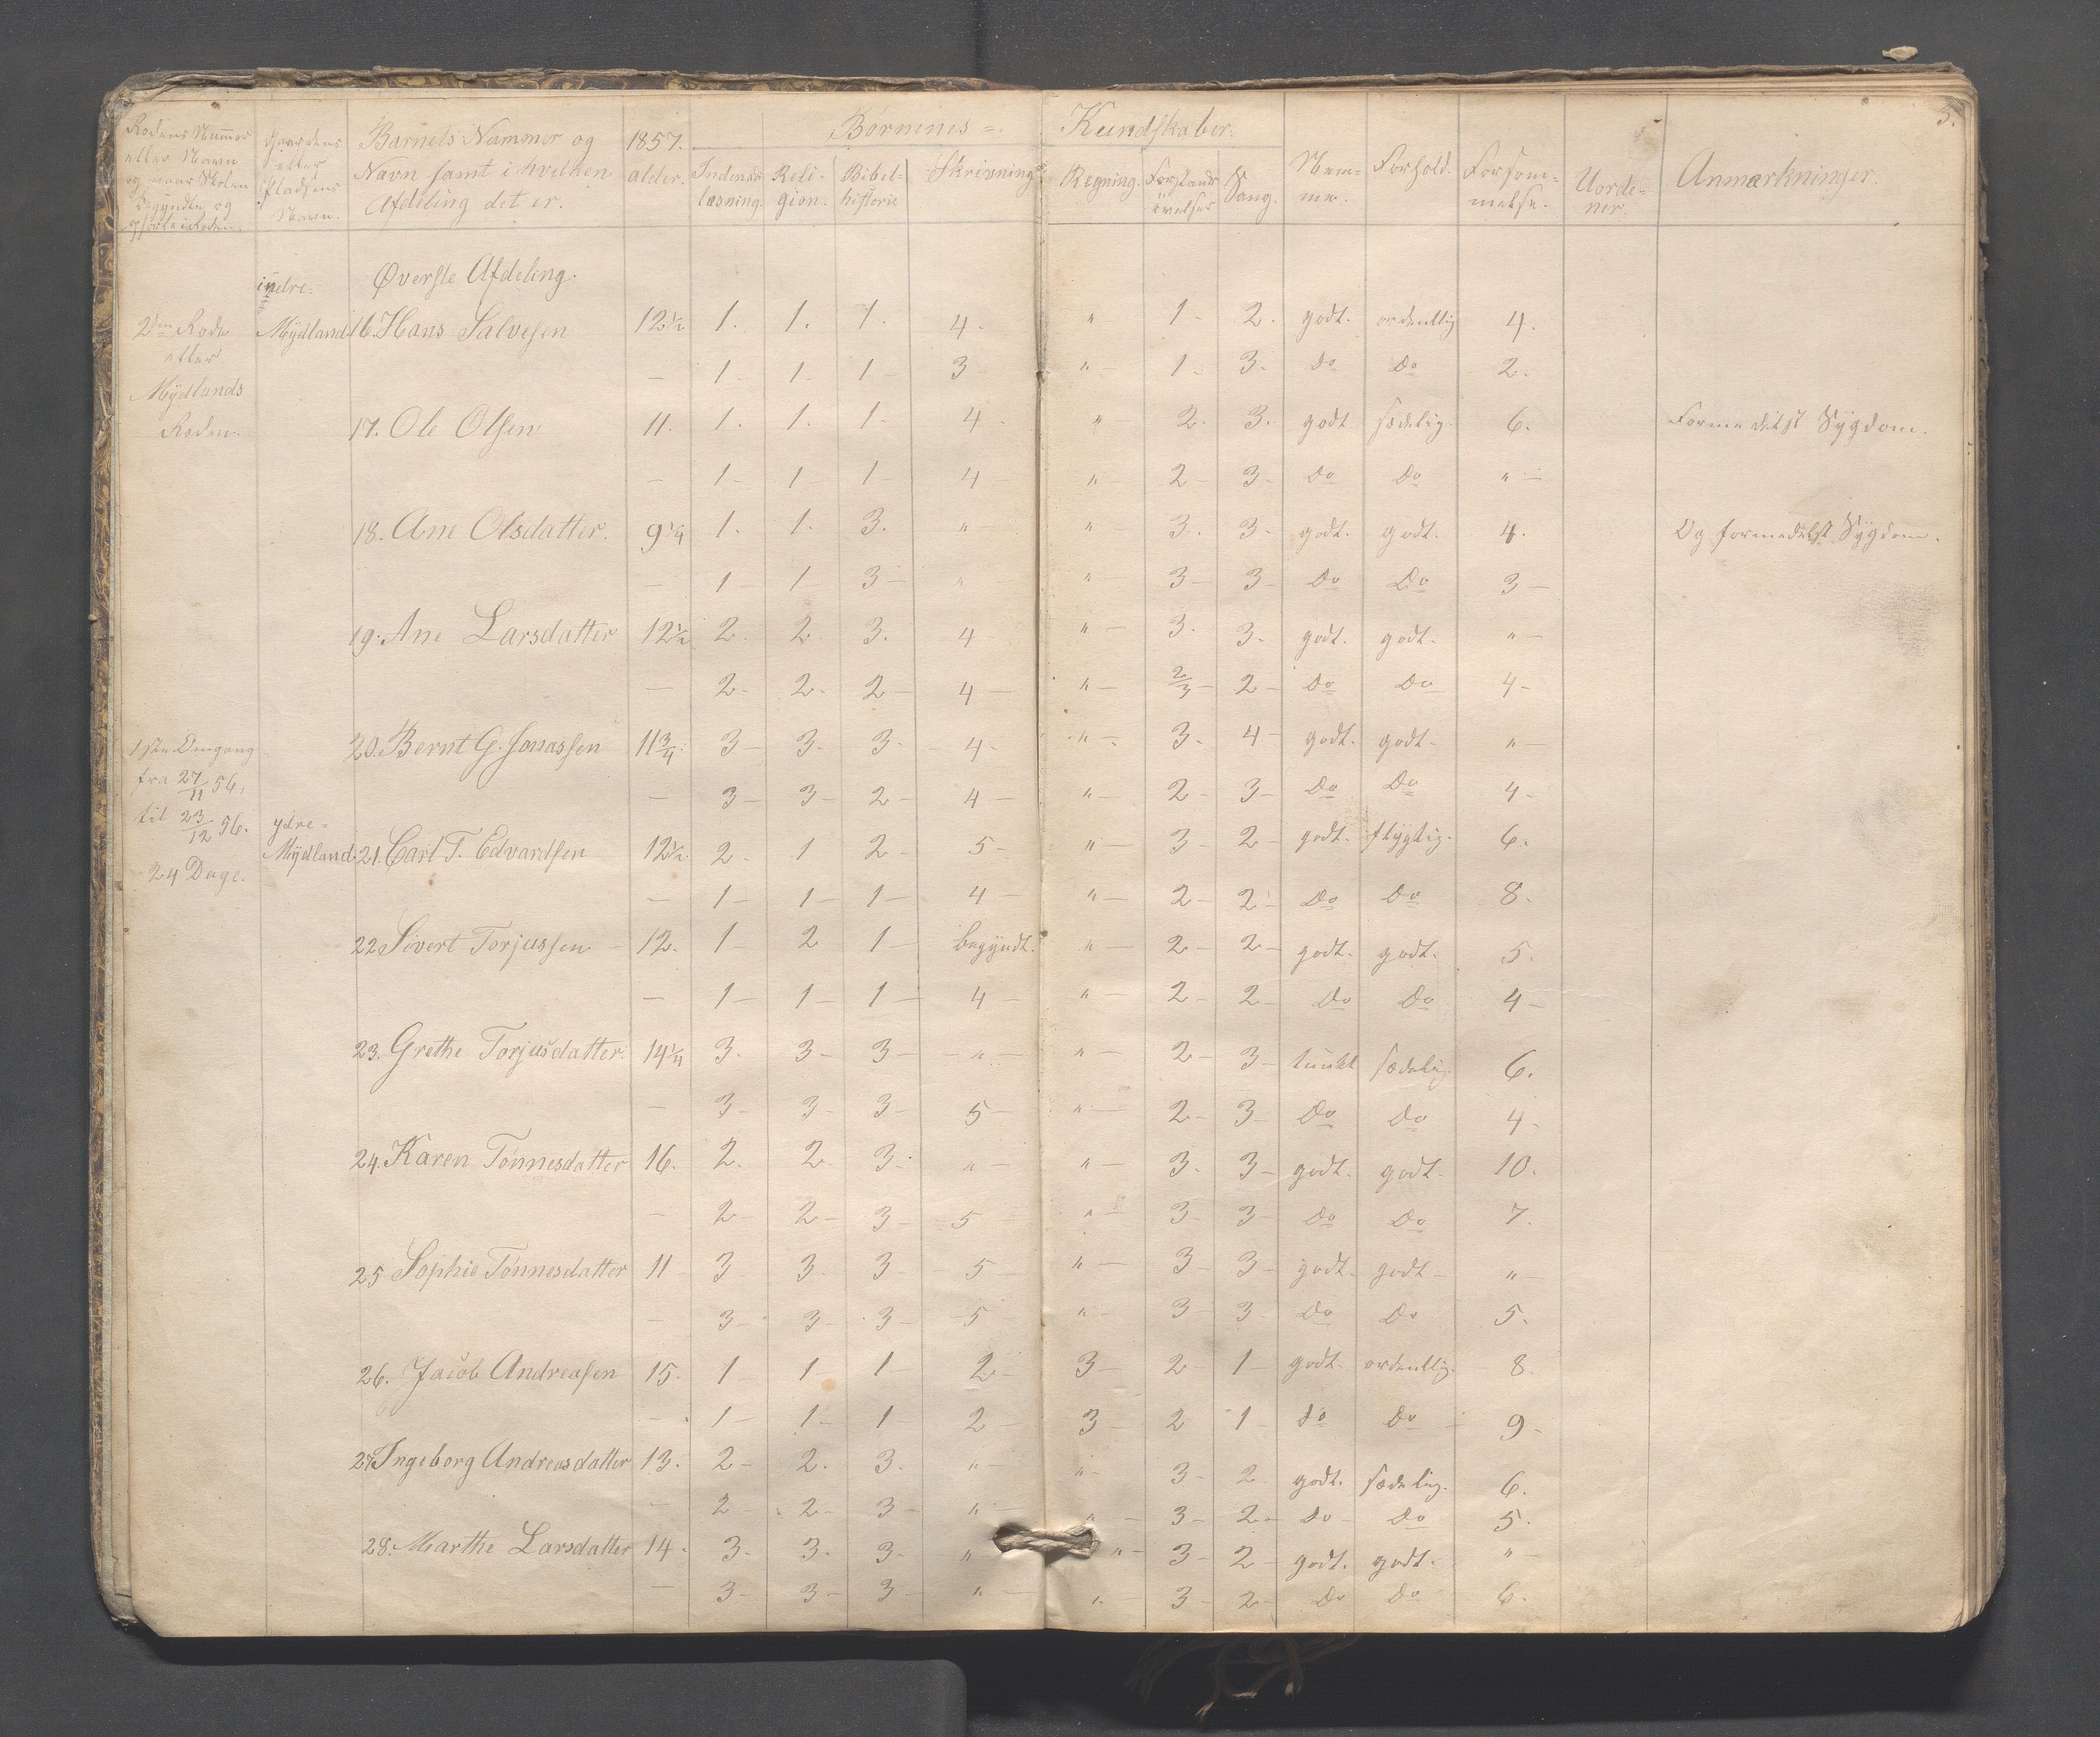 3.
Rodens Nummer eller Navn og naar Skolen begyndte og
Gaardens eller Pladsens Navn.
Barnets Nummer og Navn samt i hvilken Afdeling det er.
1857. alder.
Børnenes Kundskaber.
Indenadlæsning. Religion. Bibelhistorie Skrivning Regning. Forstandsøvelser Sang. Nemme. Forhold. Forsømmelse. Uordener. Anmærkninger.
Øverste Afdeling.
indre
2den Rode Mÿdland 16. Hans Salvesen 12½ 1. 1. 1. 4. " 1. 2. godt. ordentlig 4.
eller — 1 1 1 3 " 1 3. do do 2.
Mÿdlands
Roden. 17. Ole Olsen 11. 1. 1. 1. 4. " 2. 3. godt sædelig. 6. Formedelst Sÿgdom.
— 1 1 1 4 " 2 3 do do "
18. Ane Olsdatter. 9¼ 1. 1. 3. " " 3. 3 godt. godt. 4. Og formedelst Sÿgdom.
— 1 1 3 " " 3 3 do do 3
19. Ane Larsdatter 12½ 2. 2 3. 4 " 3. 3. godt. godt. "
— 2 2 2 4 " 2/3 2 do do 4
1ste Omgang 20. Bernt G. Jonassen 11¾ 3 3. 3. 4. " 3. 4 godt. godt. "
fra 27/11 56, — 3 3 2 4 " 2 3 do do 4
til 23/12 56. ydre
24 Dage. Mÿdland 21. Carl T. Edvardsen 12½ 2. 1 2 5 " 3 2 godt. flÿgtig. 6.
— 1 1 1 4 " 2 2 do do 8.
22 Sivert Torjussen 12. 1 2 1 begÿndt. " 2 2 godt. godt. 5.
— 1 1 1 4 " 2 2 do do 4
23. Grethe Torjusdatter. 14¼ 3. 3 3 " " 2 3 tungt sædelig. 6.
— 3 3 3 5 " 2 3 do do 4
24. Karen Tønnesdatter 16. 2. 2. 3. " " 3. 3 godt. godt. 10.
— 2 2 3 5 " 3 3 do do 7.
25 Sophie Tønnesdatter 11 3 3. 3 5 " 3 3 godt. godt "
— 3 3 3 5 " 3 3 do do 5.
26. Jacob Andreasen 15. 1 1 1 2 3 2 1 godt. ordentlig. 8.
— 1 1 1 2 3 2 1 do do 9
27. Ingeborg Andreasdatter 13. 2 2. 3. " " 3 2 godt. sædelig. 6.
— 2 2 3 " " 3 2 do do 5.
28. Marthe Larsdatter 14. 3. 3. 3. " " 3 2 godt. godt. "
— 3 3 3 " " 3 2 do do 6.